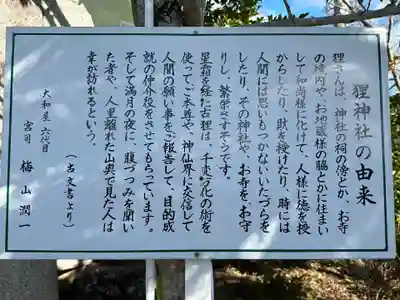 狸神社の由来
狸さんは、神社の祠の傍とか、お寺
の境内や、お地蔵様の脇とかに住まい
して和尚様に化けて、人様に徳を授
からしたり、財を授けたり、時には
人間には思いもつかないいたづらを
したり、その神社や、お寺を、お守
りし、繁栄さすそうです。
星霜を経た古狸は、千変万化の術を
使ってご本尊や、神仙界に交信して
人間の願い事をご報告して、目的成
就の仲介役をさせてもらっています。
そして満月の夜に、腹づつみを聞い
た者や、人里離れた山奥で見た人は
幸が訪れるという。
(古文書より)
大和屋 六代目
宮司 梅山潤一